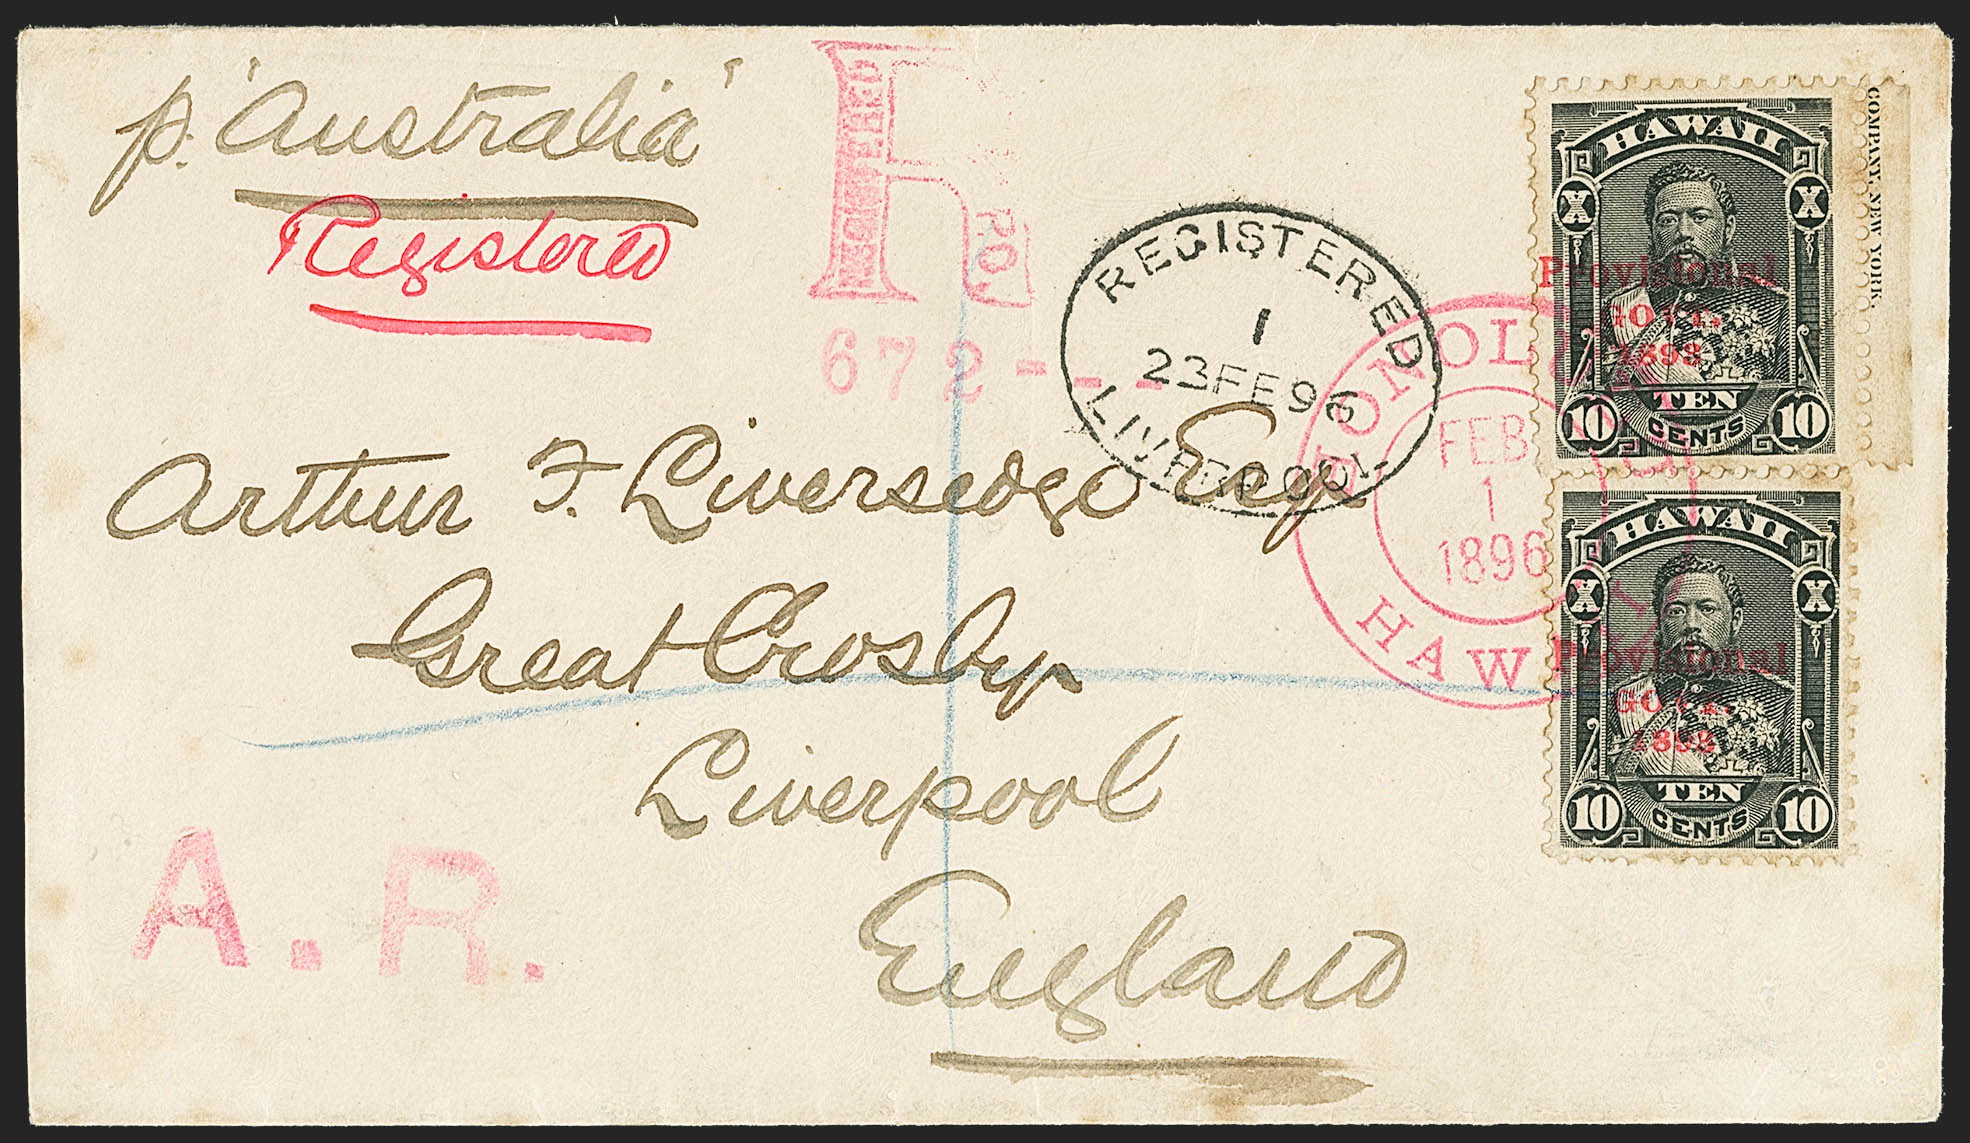 p. 'Australia'
Registered
R
P.O.
672---
REGISTERED
1
23FE96
LIVERPOOL
HONOLULU
FEB
1
1896
HAWAII
Arthur F. Liversedge Esq.
Great Crosby
Liverpool
England
A.R.
COMPANY, NEW YORK.
HAWAII
X X
Provisional
GOVT.
1893
10 TEN CENTS 10
HAWAII
X X
Provisional
GOVT.
1893
10 TEN CENTS 10